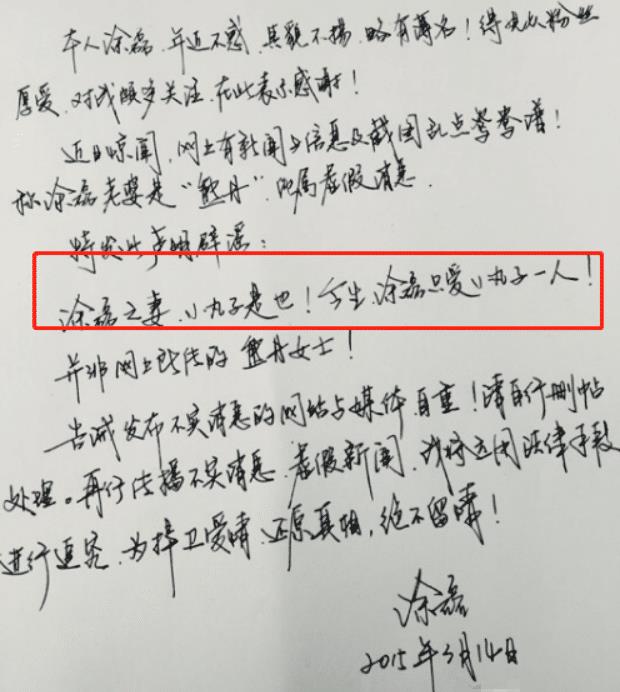 本人涂磊，年近不惑，其貌不扬，略有薄名！得大众粉丝
厚爱，对我颇多关注，在此表示感谢！
近日惊闻，网上有新闻与信息及截图乱点鸳鸯谱！
称涂磊老婆是“熊丹”，此属虚假消息。
特发此声明辟谣：
涂磊之妻，小丸子是也！今生，涂磊只爱小丸子一人！
并非网上所传的熊丹女士！
告诫发布不实消息的网站与媒体，自重！请自行删帖
处理。再行传播不实消息、虚假新闻，我将运用法律手段
进行追究，为捍卫爱情，还原真相，绝不留情！
涂磊
2015年3月14日